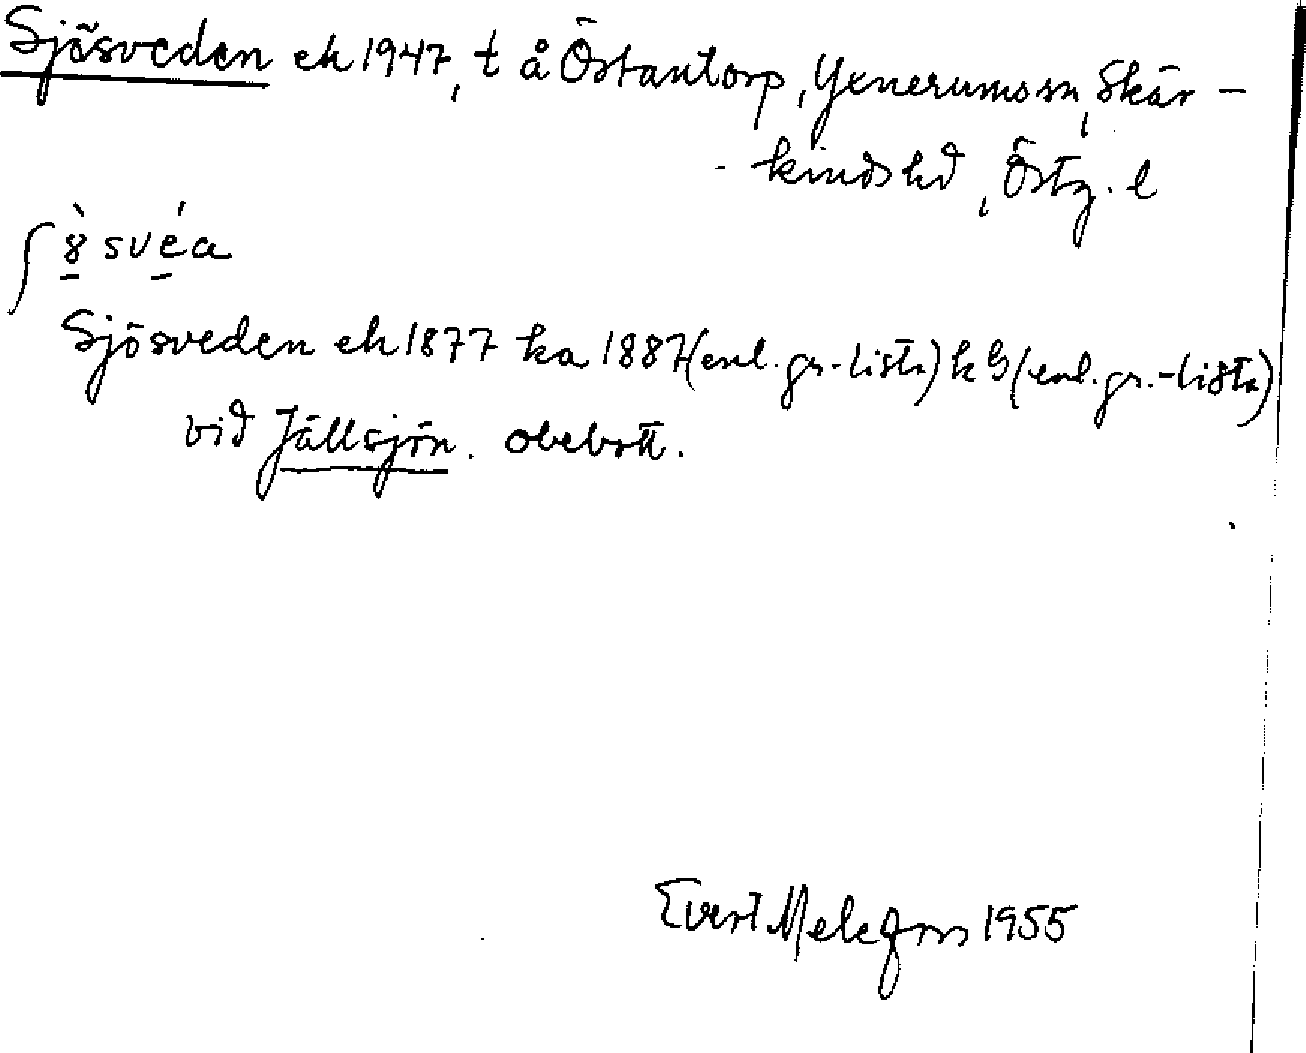 Sjösveden ek 1947, t å Östantorp, Yxnerums sn, Skär-
-kinds hd, Östg. l
ʃ 8̀ své a
Sjösveden ek 1877 ka 1887 (enl. gr.-lista) k b (enl. gr.-lista)
vid Jällsjön. obebott.
Evert Melefors 1955